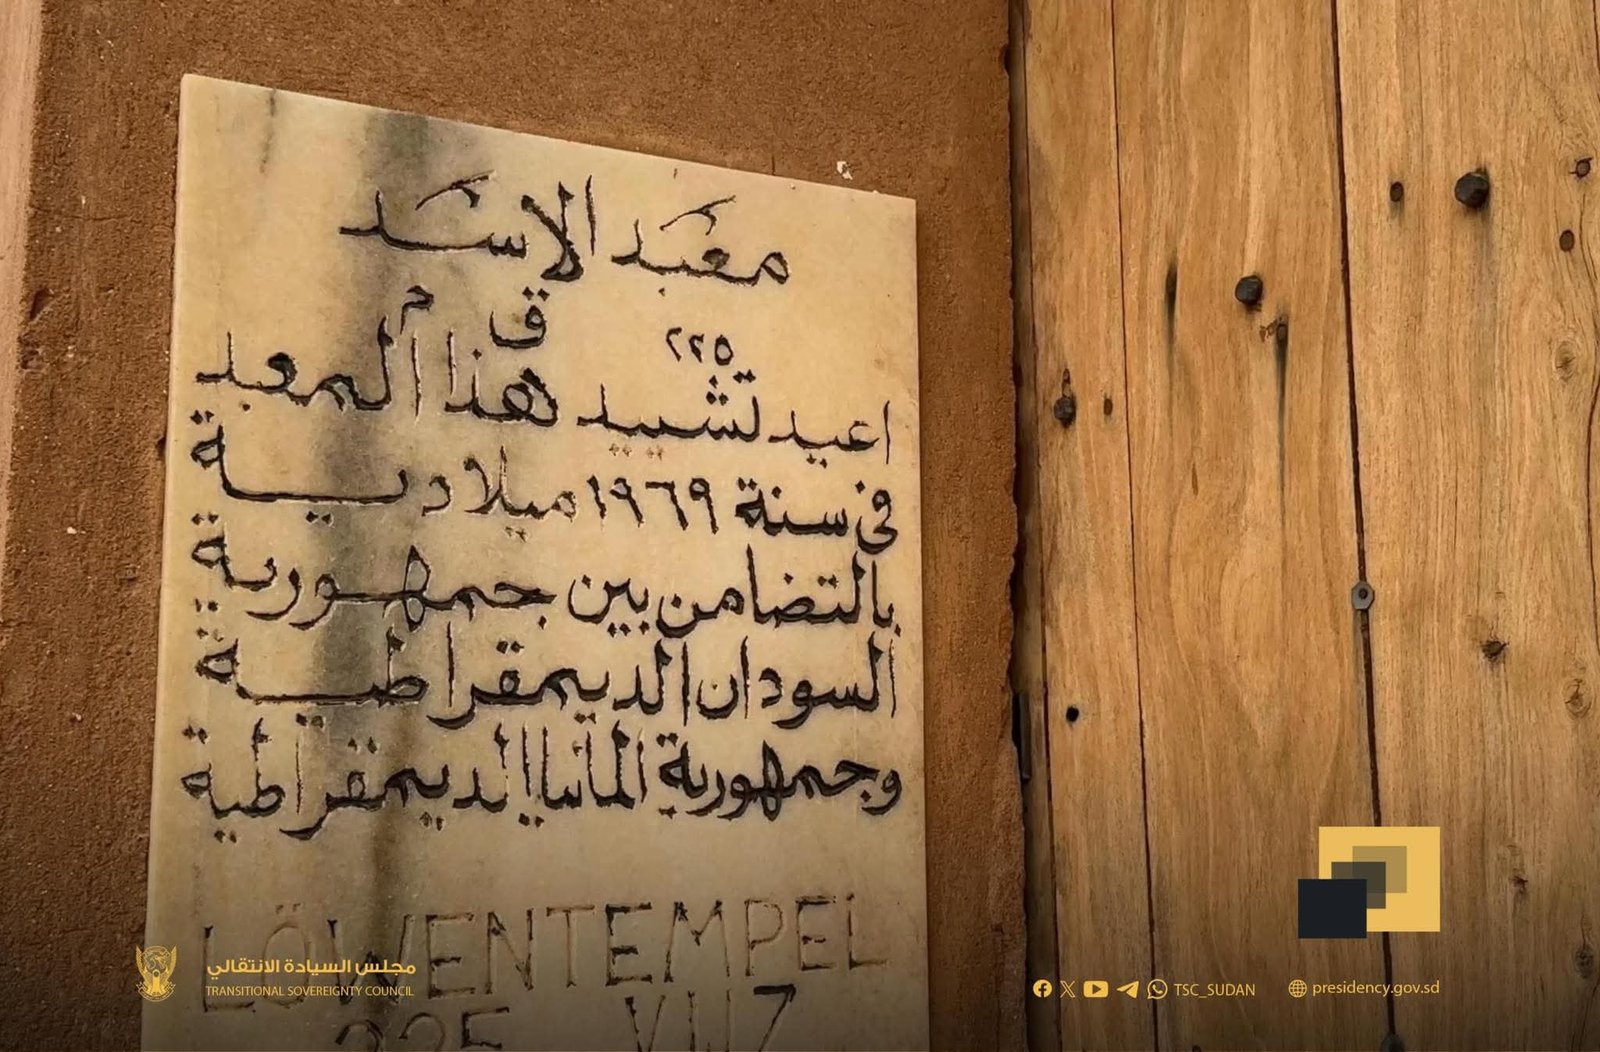 معبد الاسد
٢٢٥ ق م
اعيد تشييد هذا المعبد
فى سنة ١٩٦٩ ميلادية
بالتضامن بين جمهورية
السودان الديمقراطية
وجمهورية المانيا الديمقراطية
LÖWENTEMPEL
225 V.U.Z
مجلس السيادة الانتقالي
TRANSITIONAL SOVEREIGNTY COUNCIL
TSC_SUDAN
presidency.gov.sd